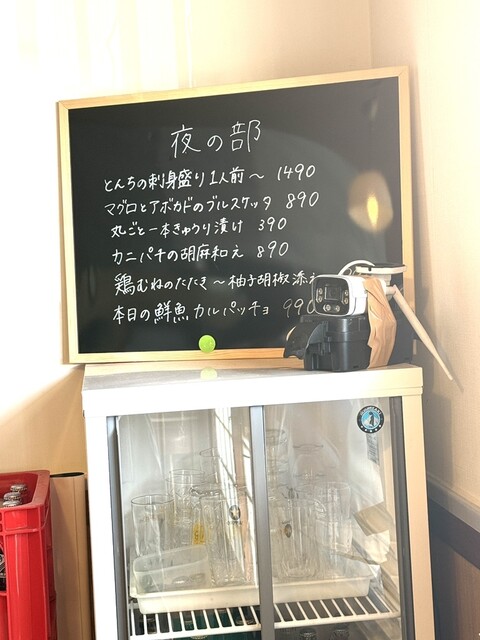 夜の部
とんちの刺身盛り1人前〜 1490
マグロとアボカドのブルスケッタ 890
丸ごと一本きゅうり漬け 390
カニパチの胡麻和え 890
鶏むねのたたき〜柚子胡椒添え
本日の鮮魚カルパッチョ 990